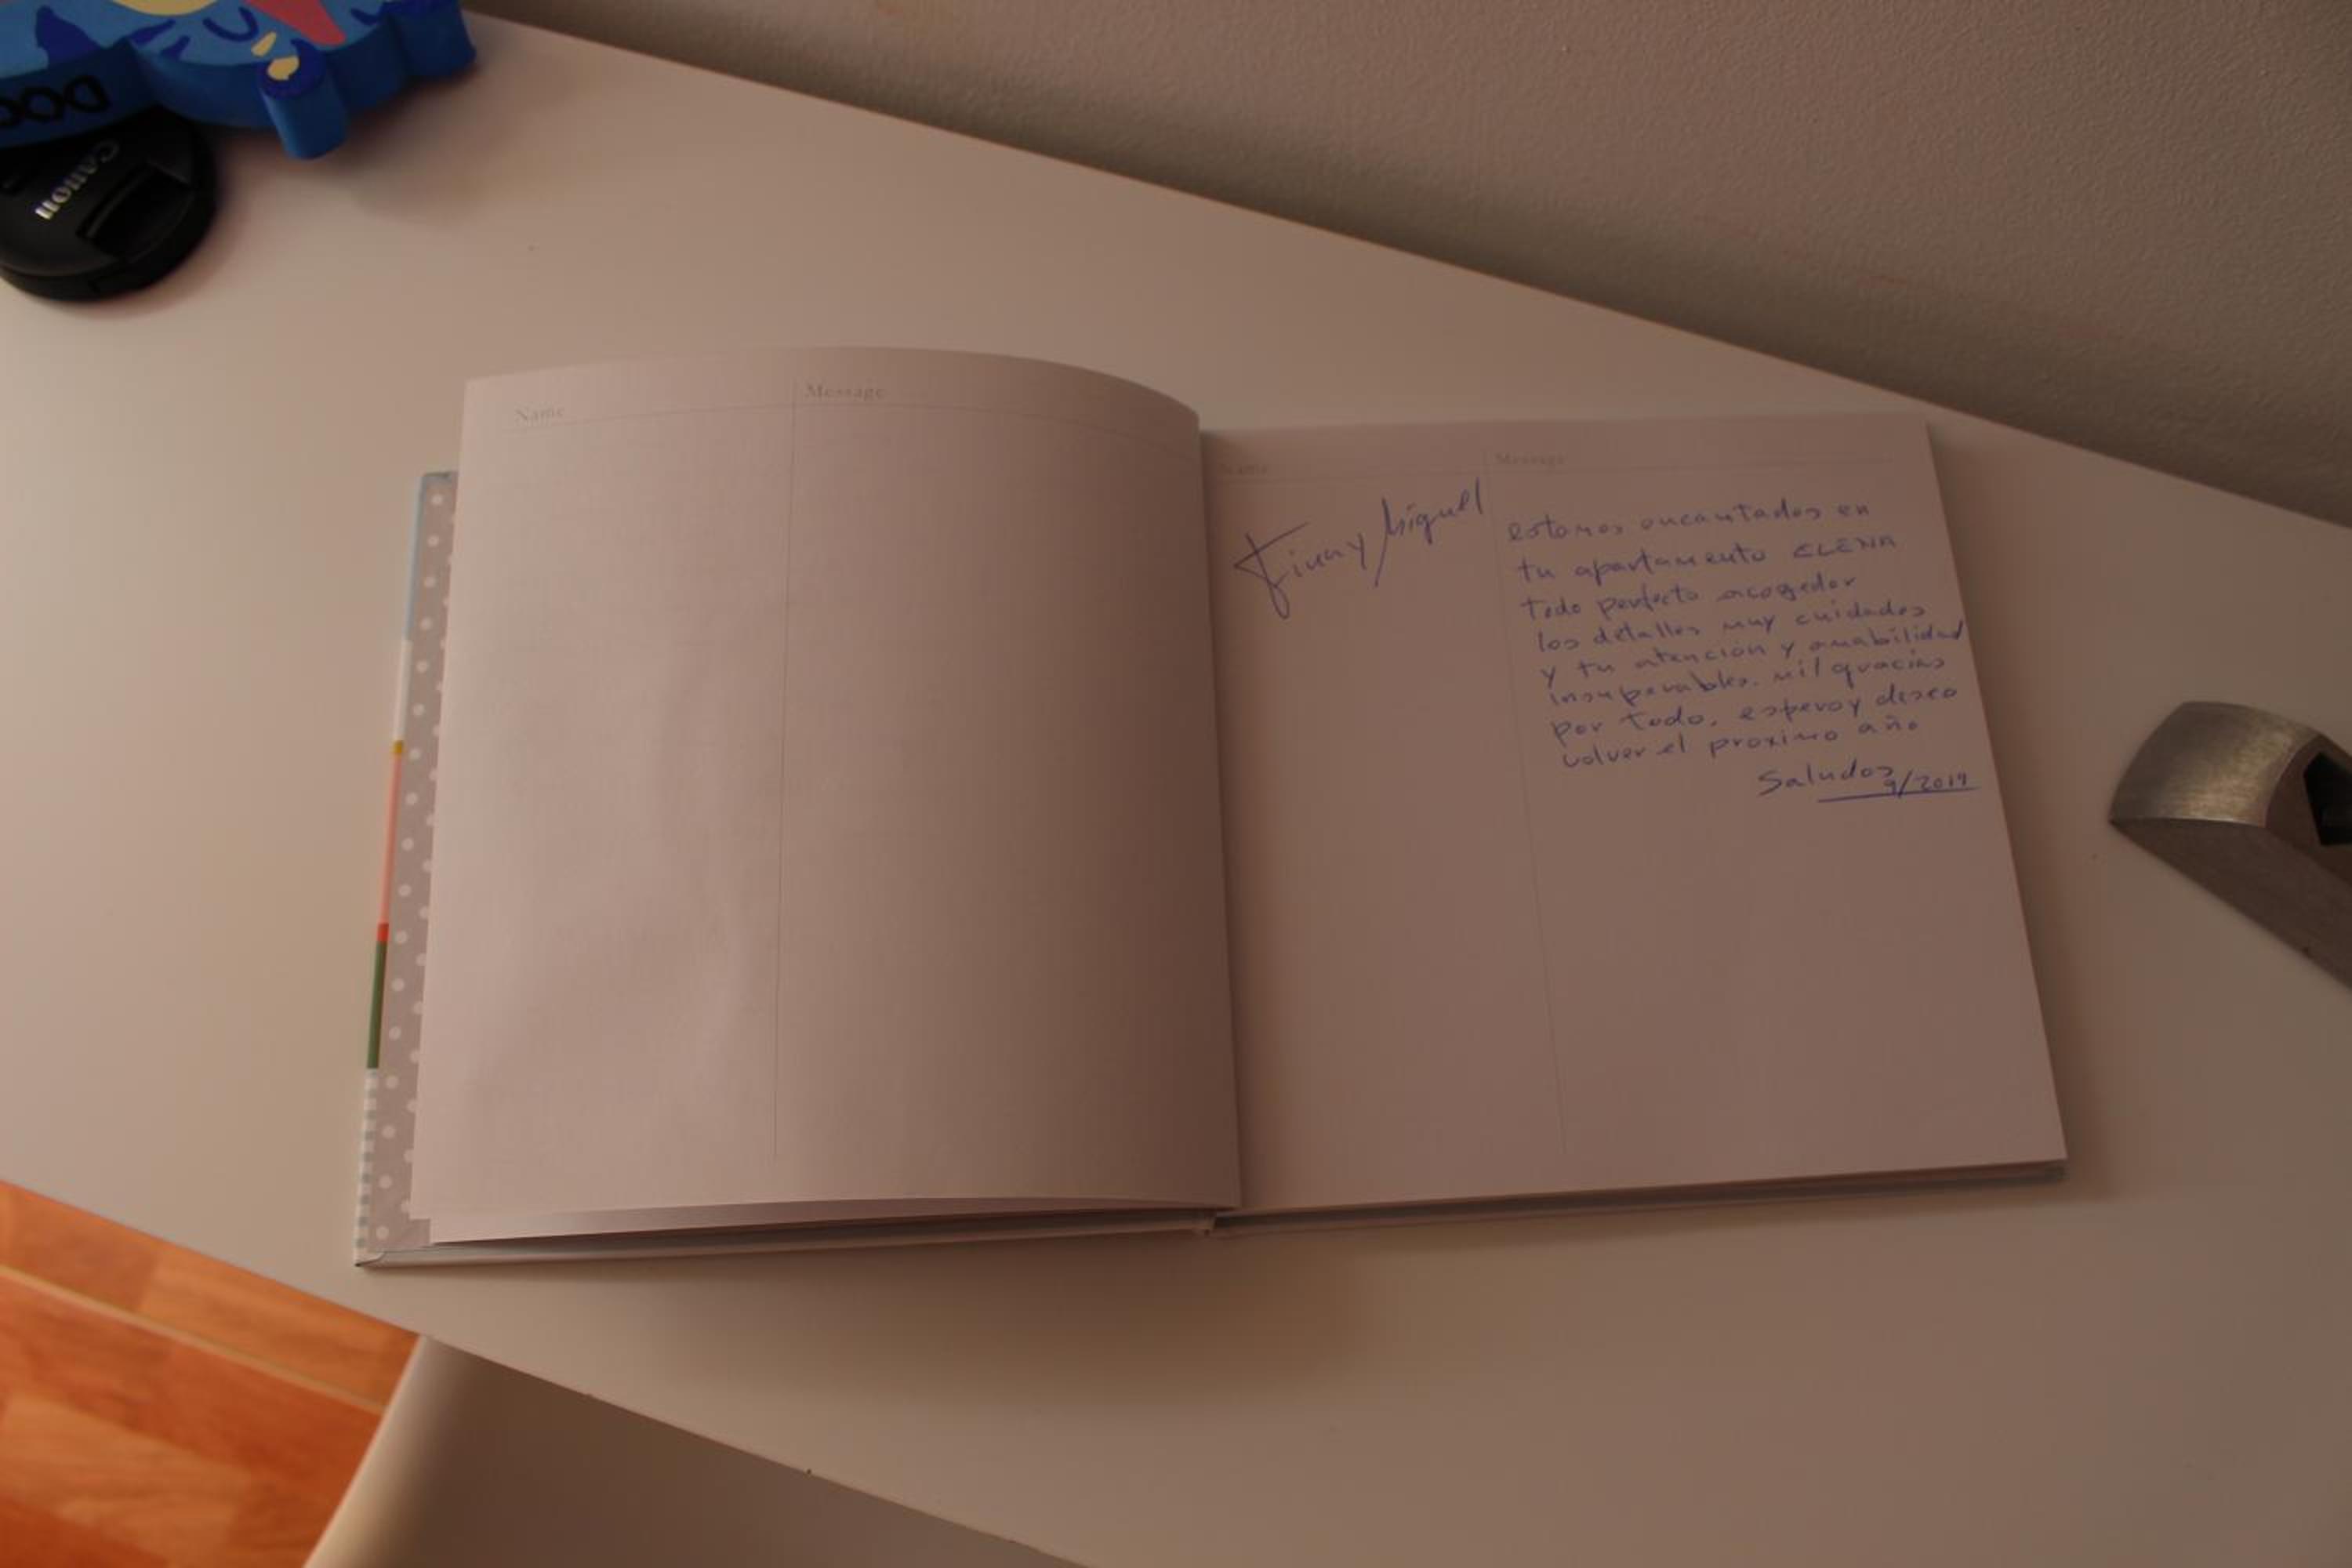 DOG
Canon
Name
Message
Name
Message
y Miguel
estamos encantados en
tu apartamento ELENA
todo perfecto acogedor
los detalles muy cuidados
y tu atención y amabilidad
insuperables. mil gracias
por todo, espero y deseo
volver el proximo año
Saludos
9/2019